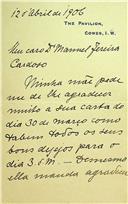 12 d'Abril de 1906
THE PAVILION,
COWES, I.W.
Meu caro D. Manuel Pereira
Cardoso
Minha mãe pede
me de lhe agradecer
muito a sua carta do
dia 30 de março como
tabem todos os seus
bons dezejos para o
dia 3. f.m. — Demesmo
ella manda agradecer